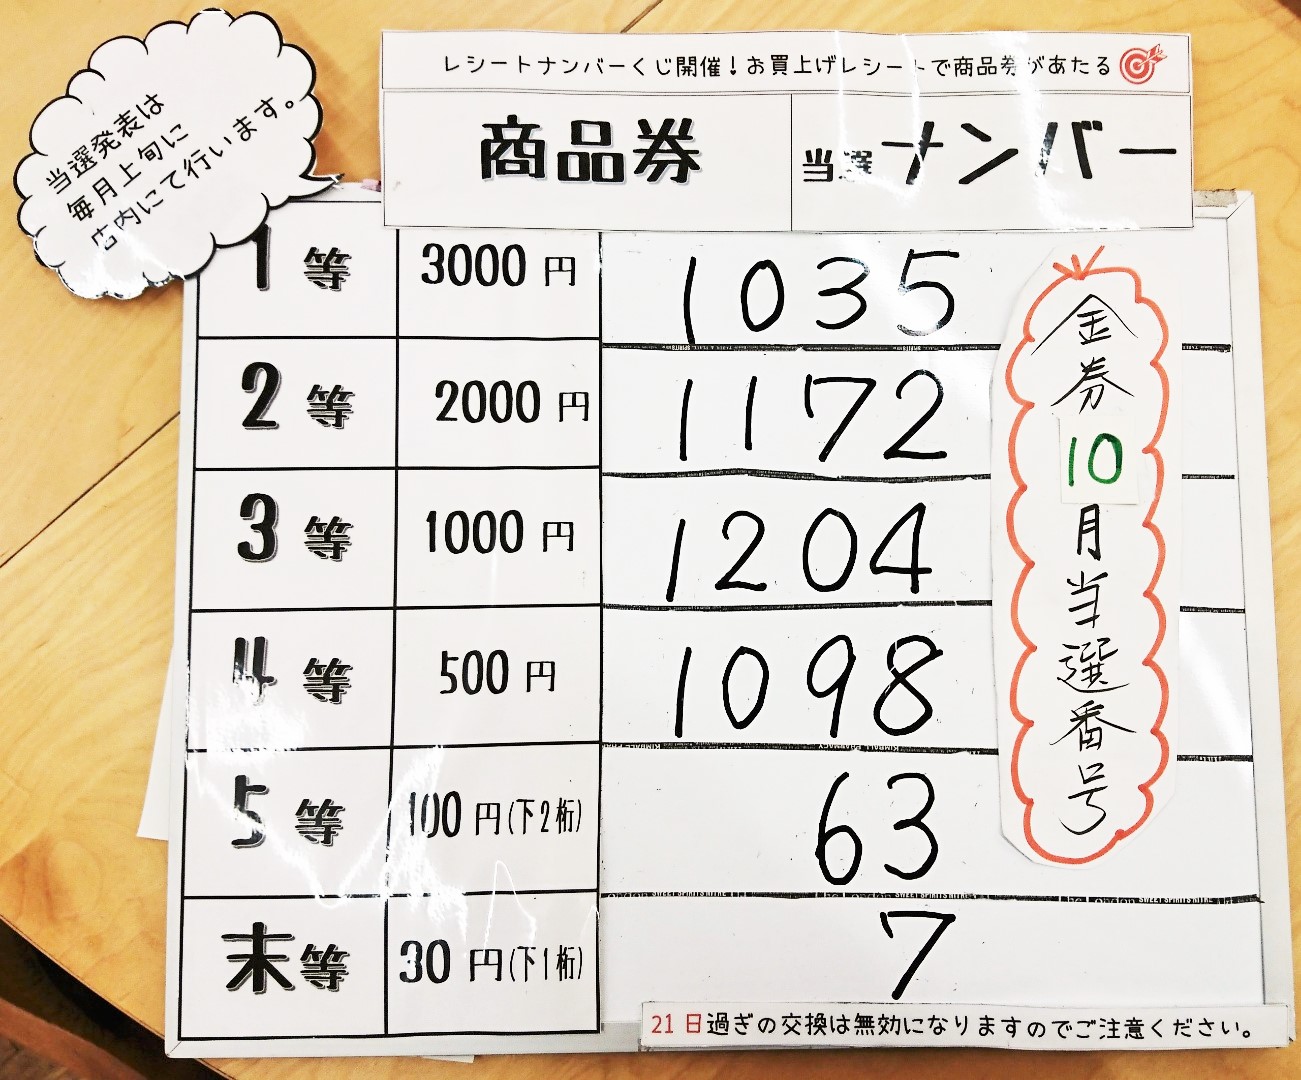 当選発表は
毎月上旬に
店内にて行います。
レシートナンバーくじ開催！お買上げレシートで商品券があたる
商品券 当選ナンバー
1等 3000円 1035
2等 2000円 1172
3等 1000円 1204
4等 500円 1098
5等 100円(下2桁) 63
末等 30円(下1桁) 7
金券10月当選番号
21日過ぎの交換は無効になりますのでご注意ください。